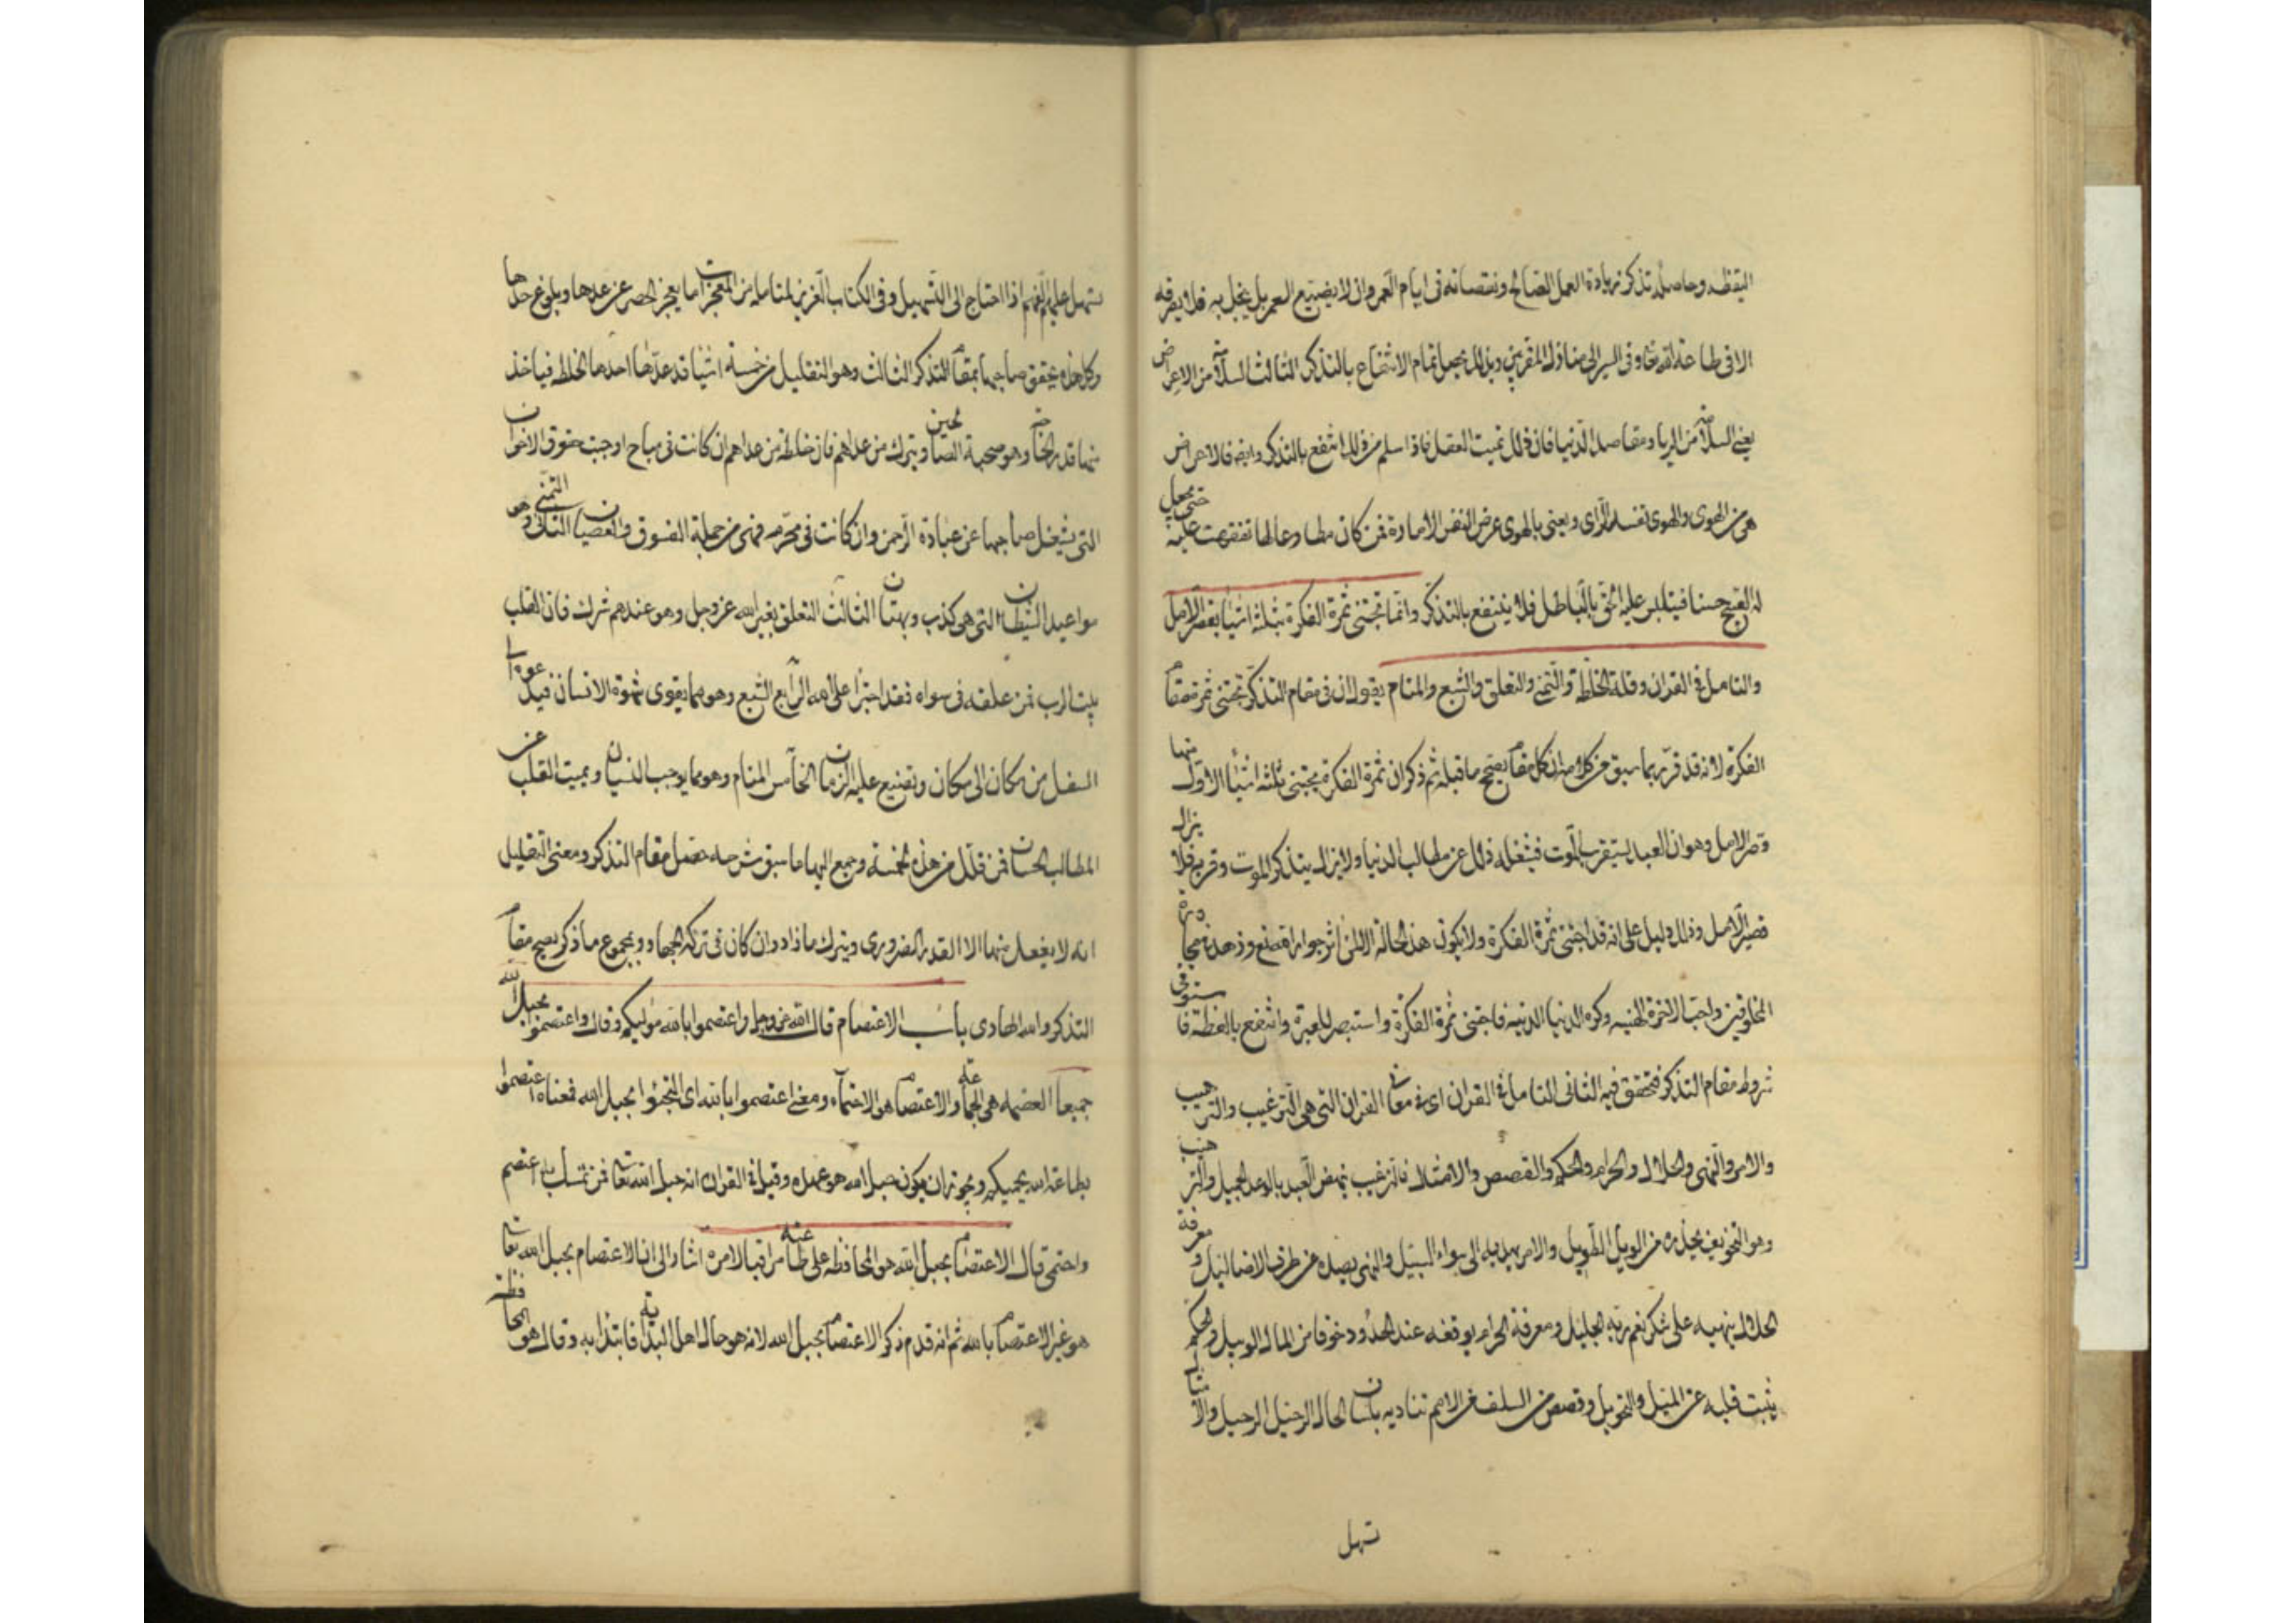 اليقظة وحاصله تذكر زيادة العمل الصالح ونقصانه فى ايام العمر وان لا يضيع العمر بل يبخل به فلا يصرفه
الا فى طاعة الله تعالى وفى السير الى منازل المقربين وبذلك يحصل تمام الانتفاع بالتذكر الثالث السلامة من الاعراض
يعنى السلامة من الريا ومقاصد الدنيا فان ذلك تميت العقل فاذا سلم من ذلك انتفع بالتذكر وايضا فالاعراض
هى من الهوى والهوى تفسد الراى ويعنى بالهوى عرض النفس الامارة فمن كان مطاوعا لها تفقهت عليه حتى يجعل
له القبيح حسنا فيتلبس عليه الحق بالباطل فلا ينتفع بالتذكر وانما تجتنى ثمرة الفكرة بثلثة اشياء بقصر الامل
والتامل فى القران وقلة الخلطة والتمنى والتعلق والشبع والمنام يقول ان فى مقام التذكر تجتنى ثمرة مقام
الفكرة لانه قد قرر بما سبق من كلامه ان كل مقام يصحح ما قبله ثم ذكر ان ثمرة الفكرة تجتنى بثلثة اشياء الاول منها
قصر الامل وهو ان العبد يستقرب الموت فيشغله ذلك عن مطالب الدنيا ولا يزال يتذكر الموت وقربه فلا يزال
قصير الامل وذلك دليل على انه قد اجتنى ثمرة الفكرة ولا يكون هذه الحالة الا لمن اثر جوار القنع وزهد فى مجاورة
المخلوقين واحب الاخرة الهنية وكره الدنيا الدنية فاجتنى ثمرة الفكرة واستبصر للعبرة وانتفع بالعظة فاستوفى
شروط مقام التذكر فتحقق فيه الثانى التامل فى القران اى فى معانى القران التى هى الترغيب والترهيب
والامر والنهى والحلال والحرام والحكم والقصص والامثال فالترغيب ينهض العبد بالوعد الجميل والترهيب
وهو التخويف يحذره من الوبيل الطويل والامر يهديه الى سواء السبيل والنهى يصده عن طرق الاضاليل ومعرفة
الحلال ينهيه على شكر نعم ربه الجليل ومعرفة الحرام يوقفه عند الحدود خوفا من المال الوبيل والحكم
يثبت قلبه عن الميل والتحويل وقصص من السلف من الامم تناديه بلسان الحال الرحيل الرحيل والامثال
تسهل
تسهل عليه الفهم اذا احتاج الى التسهيل وفى الكتاب العزيز لمتامله من المعجزات ما يعجز الحصر عن عدها وبلوغ حدها
وكل هذه يتحقق صاحبها بمقام التذكر الثالث وهو التقليل من خمسة اشيا قد عدها احدها الخلطة فياخذ
منها قدر الحاجة وهو صحبة الصالحين ويترك من عداهم فان خلطة من عداهم ان كانت فى مباح اوجبت حقوق الاخوان
التى يشغل صاحبها عن عبادة الرحمن وان كانت فى محرم فهى من جملة الفسوق والعصيان الثانى التمنى وهو
مواعيد الشيطان التى هى كذب وبهتان الثالث التعلق بغير الله عز وجل وهو عندهم شرك فان القلب
بيت الرب فمن علقه فى سواه فقد اجترا على الله الرابع الشبع وهو مما يقوى شهوة الانسان فيدعوه الى
السفل من مكان الى مكان وتضيع عليه الزمان الخامس المنام وهو مما يوجب النسيان ويميت القلب عن
المطالب الحسان فمن قلل من هذه الخمسة وجمع اليها ما سبق شرحه حصل مقام التذكر ومعنى التقليل
انه لا يفعل منها الا القدر الضرورى ويترك ما زاد وان كان فى تركه الجهاد وبمجموع ما ذكر يصح مقام
التذكر والله الهادى باب الاعتصام قال الله عز وجل واعتصموا بالله مولٰيكم وقال واعتصموا بحبل الله
جميعا العصمة هى الحماية والاعتصام هو الاحتماء ومعنى اعتصموا بالله اى التجئوا بحبل الله فمعناه اعتصموا
بطاعة الله يحميكم ويجوز ان يكون حبل الله هو عهده وقيل فى القران انه حبل الله تعالى فمن تمسك به اعتصم
واحتمى قال الاعتصام بحبل الله هو المحافظة على طاعته مراقبا لامره اشار الى ان الاعتصام بحبل الله تعالى
هو غير الاعتصام بالله ثم انه قدم ذكر الاعتصام بحبل الله لانه هو حال اهل البداية فابتدا به وقال هو المحافظة